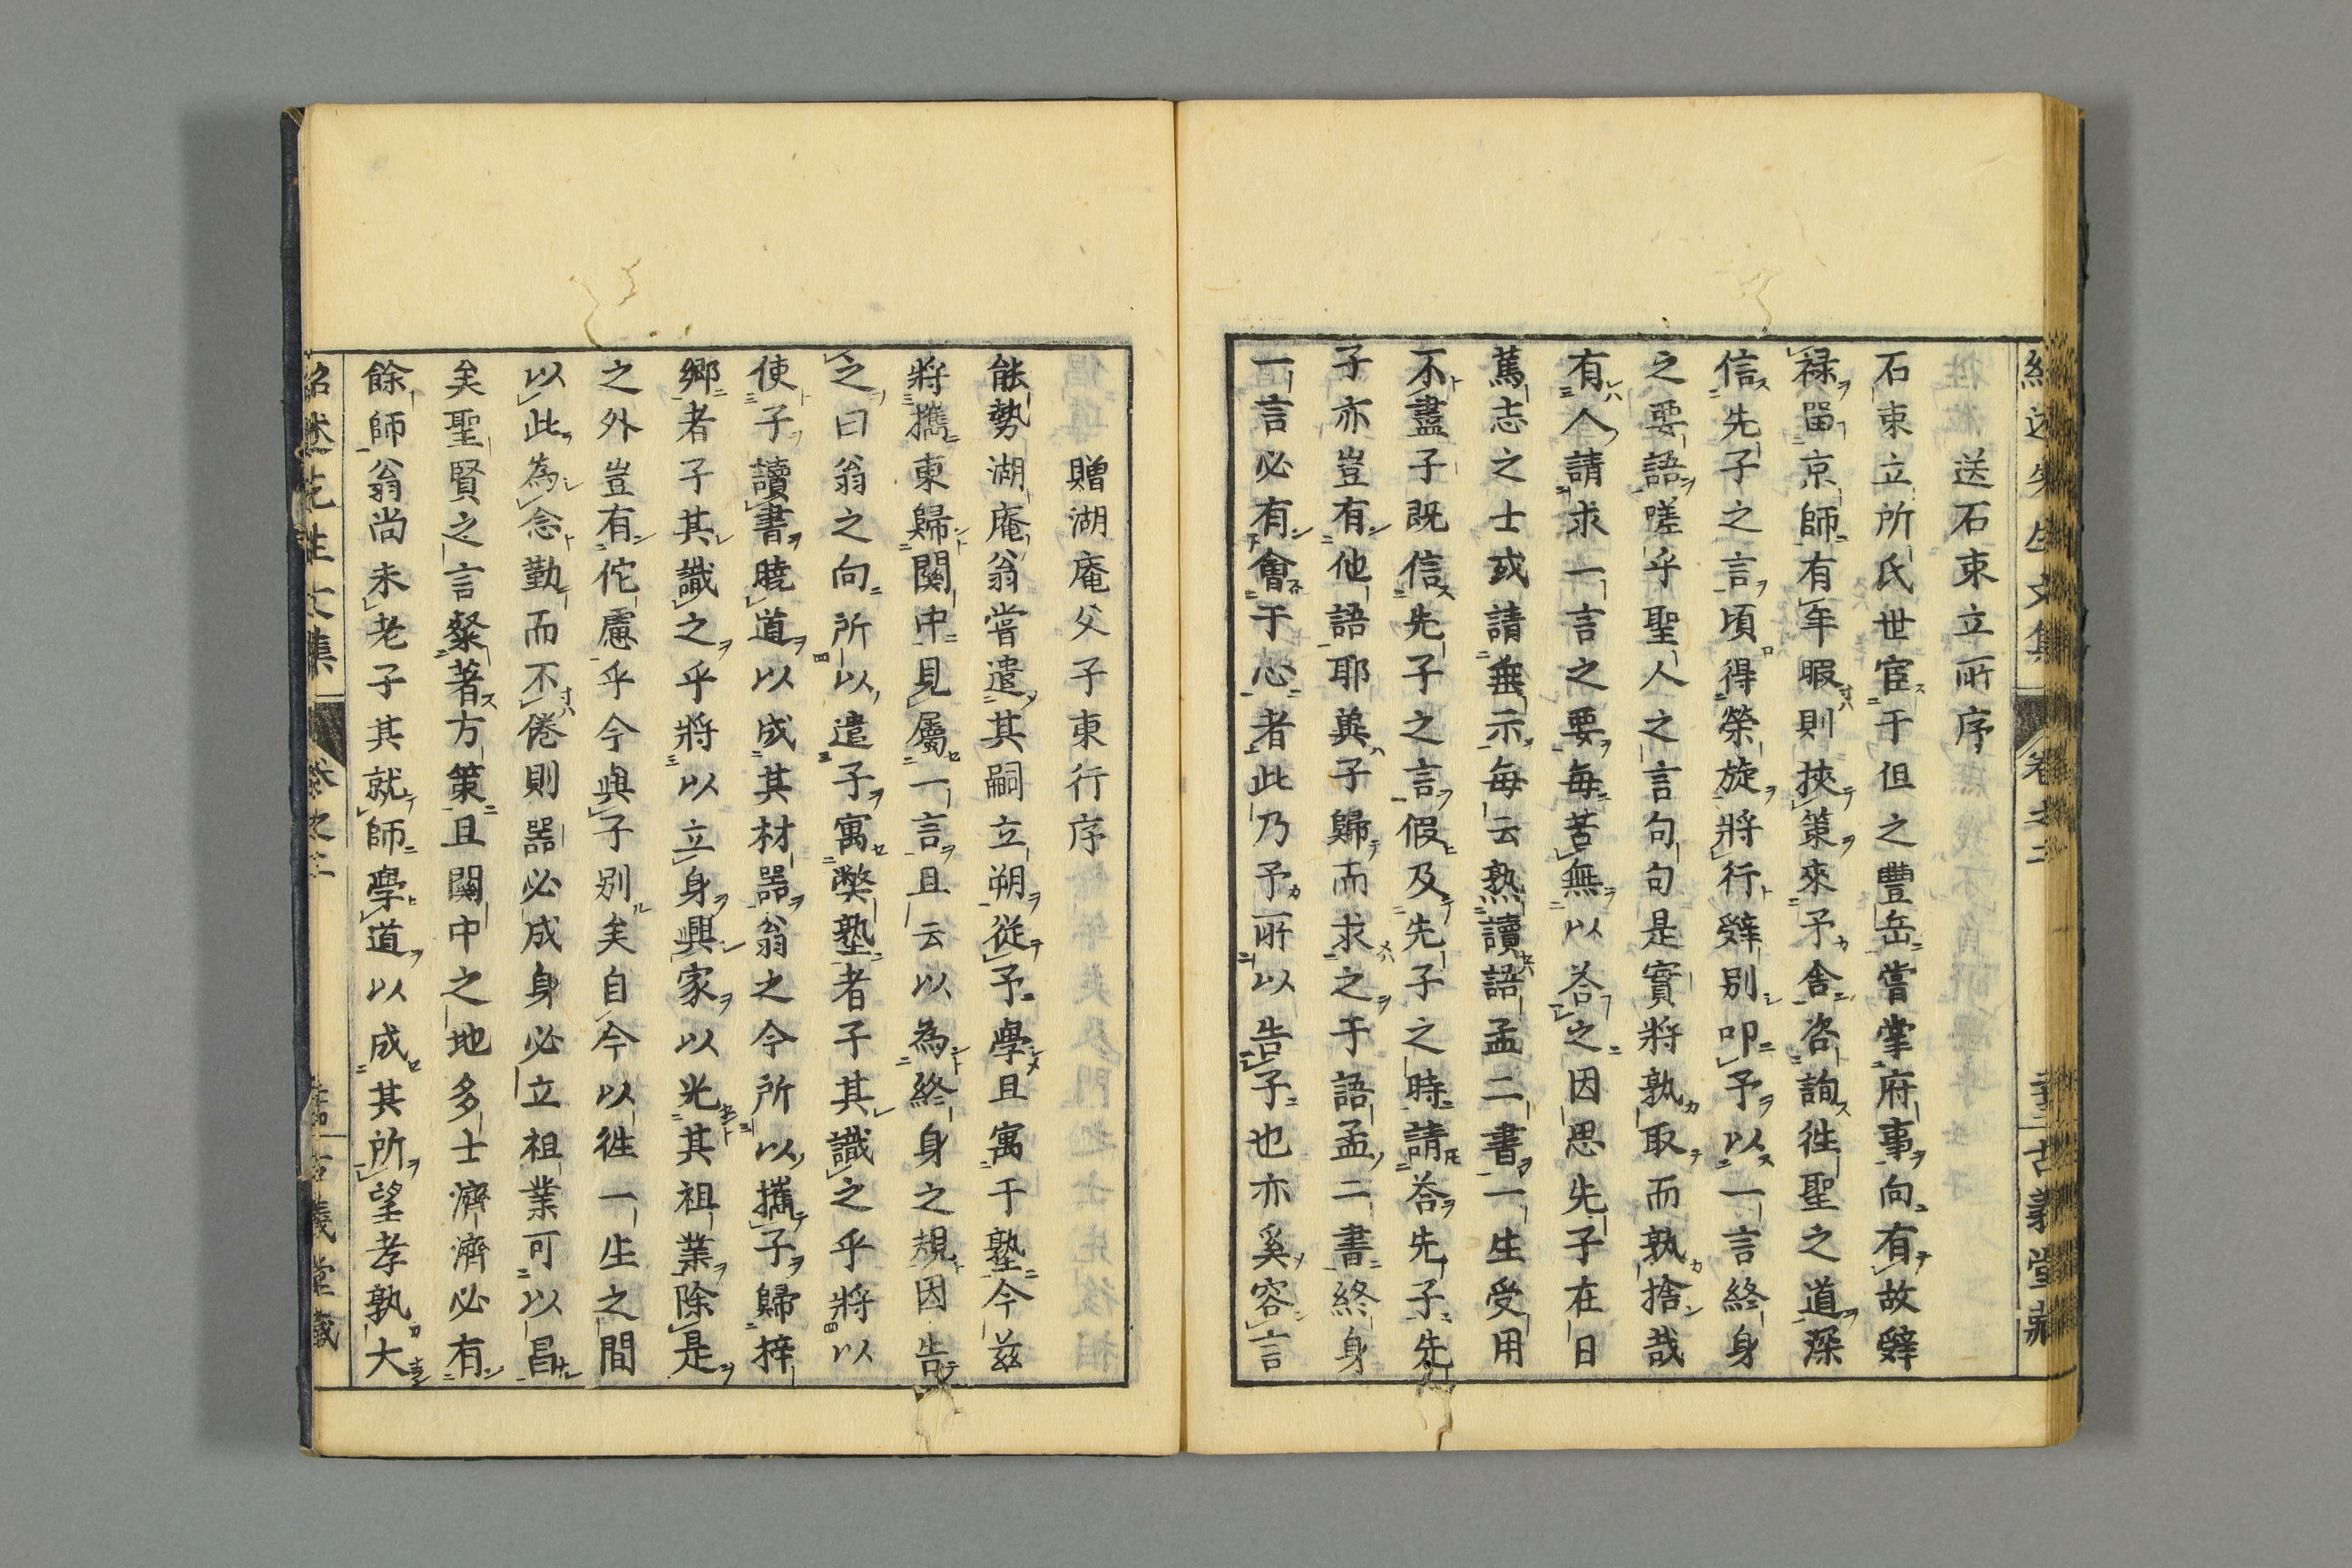 紹述先生文集 卷之二 古義堂藏
送石東立所序
石東立所氏世宦于但之豊岳嘗掌府事向有故辤
禄留京師有年暇則挾策來予舍咨詢徃聖之道深
信先子之言頃得榮旋將行辤別叩予以一言終身
之要語嗟乎聖人之言句句是實將孰取而孰捨哉
有人請求一言之要毎苦無以荅之因思先子在日
篤志之士或請垂示毎云熟讀語孟二書一生受用
不盡子既信先子之言假及先子之時請荅先子先
子亦豈有他語耶兾子歸而求之于語孟二書終身
一言必有會于心者此乃予所以告子也亦奚容言
贈湖庵父子東行序
能勢湖庵翁嘗遣其嗣立朔從予學且寓于塾今茲
將攜東歸關中見屬一言且云以為終身之規因告
之曰翁之向所以遣子寓弊塾者子其識之乎將以
使子讀書曉道以成其材噐翁之今所以攜子歸梓
鄉者子其識之乎將以立身興家以光其祖業除是
之外豈有佗慮乎今與子別矣自今以徃一生之間
以此為念勤而不倦則噐必成身必立祖業可以昌
矣聖賢之言粲著方策且關中之地多士濟濟必有
餘師翁尚未老子其就師學道以成其所望孝孰大
紹述先生文集 卷之二 古義堂藏